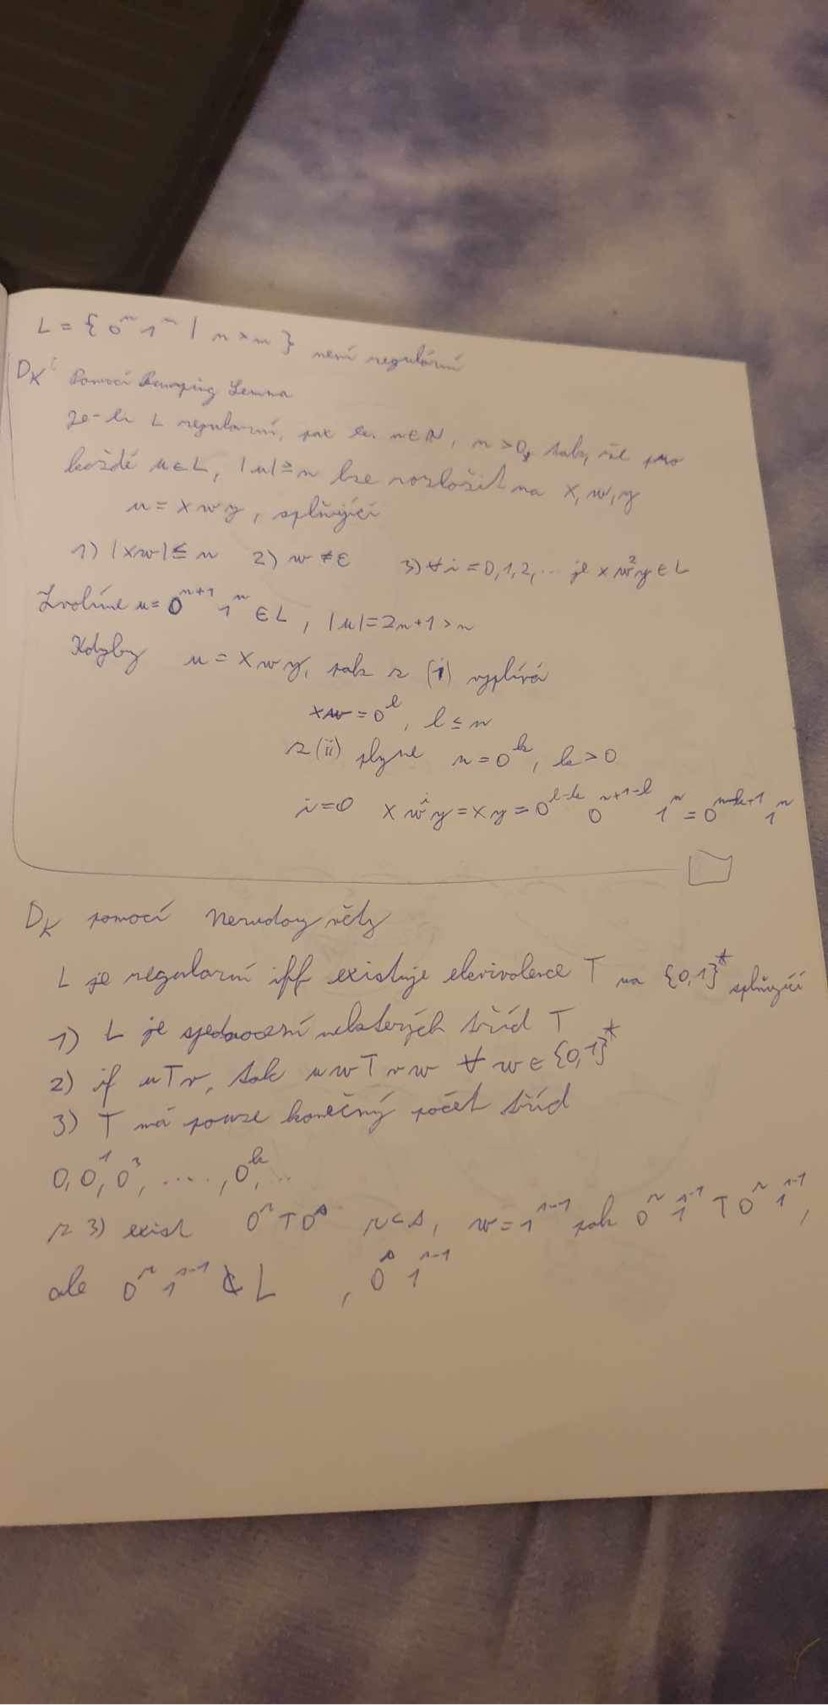 L = { 0ᵐ 1ⁿ | m > n } není regulární
Dk: Pomocí Pumping Lemma
Je-li L regulární, pak ex. n∈N, n > 0, tak, že pro
každé u∈L, |u| ≥ n lze rozložit na x, w, y
u = x w y, splňující
1) |xw| ≤ n 2) w ≠ ε 3) ∀i = 0,1,2,... je x wⁱ y ∈ L
Zvolíme u = 0ⁿ⁺¹ 1ⁿ ∈ L, |u| = 2n+1 > n
Kdyby u = x w y, pak z (i) vyplívá
xw = 0ˡ, l ≤ n
z (ii) plyne w = 0ᵏ, k > 0
i=0 x wⁱ y = x y = 0ˡ⁻ᵏ 0ⁿ⁺¹⁻ˡ 1ⁿ = 0ⁿ⁻ᵏ⁺¹ 1ⁿ
Dk pomocí Nerodovy věty
L je regulární iff existuje ekvivalence T na {0,1}* splňující
1) L je sjednocení některých tříd T
2) if uTv, tak uwTvw ∀ w ∈ {0,1}*
3) T má pouze konečný počet tříd
0, 0¹, 0³, ....., 0ᵏ, ..
z 3) exist 0ʳ T 0ˢ r < s, w = 1ˢ⁻¹ pak 0ʳ 1ˢ⁻¹ T 0ʳ 1ˢ⁻¹,
ale 0ʳ 1ˢ⁻¹ ∉ L , 0ˢ 1ˢ⁻¹